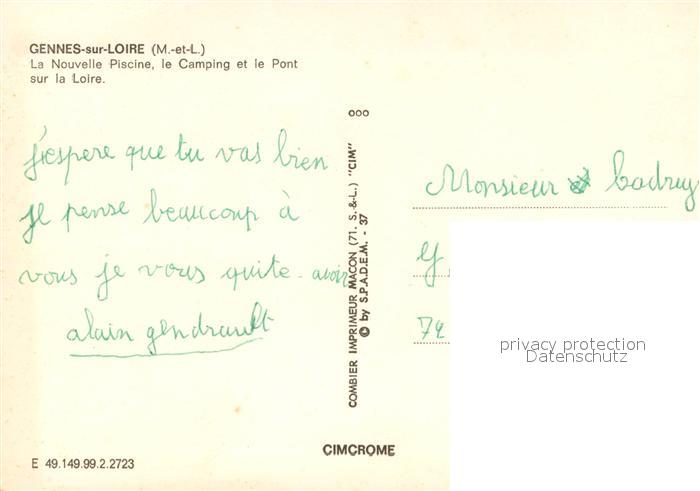 GENNES-sur-LOIRE (M.-et-L.)
La Nouvelle Piscine, le Camping et le Pont
sur la Loire.
j'espere que tu vas bien
je pense beaucoup à
vous je vous quite. avoir
alain gendrault
E 49.149.99.2.2723
ooo
COMBIER IMPRIMEUR MACON (71. S.-&-L.) "CIM"
© by S.P.A.D.E.M. - 37
CIMCROME
Monsieur
G
72
privacy protection
Datenschutz